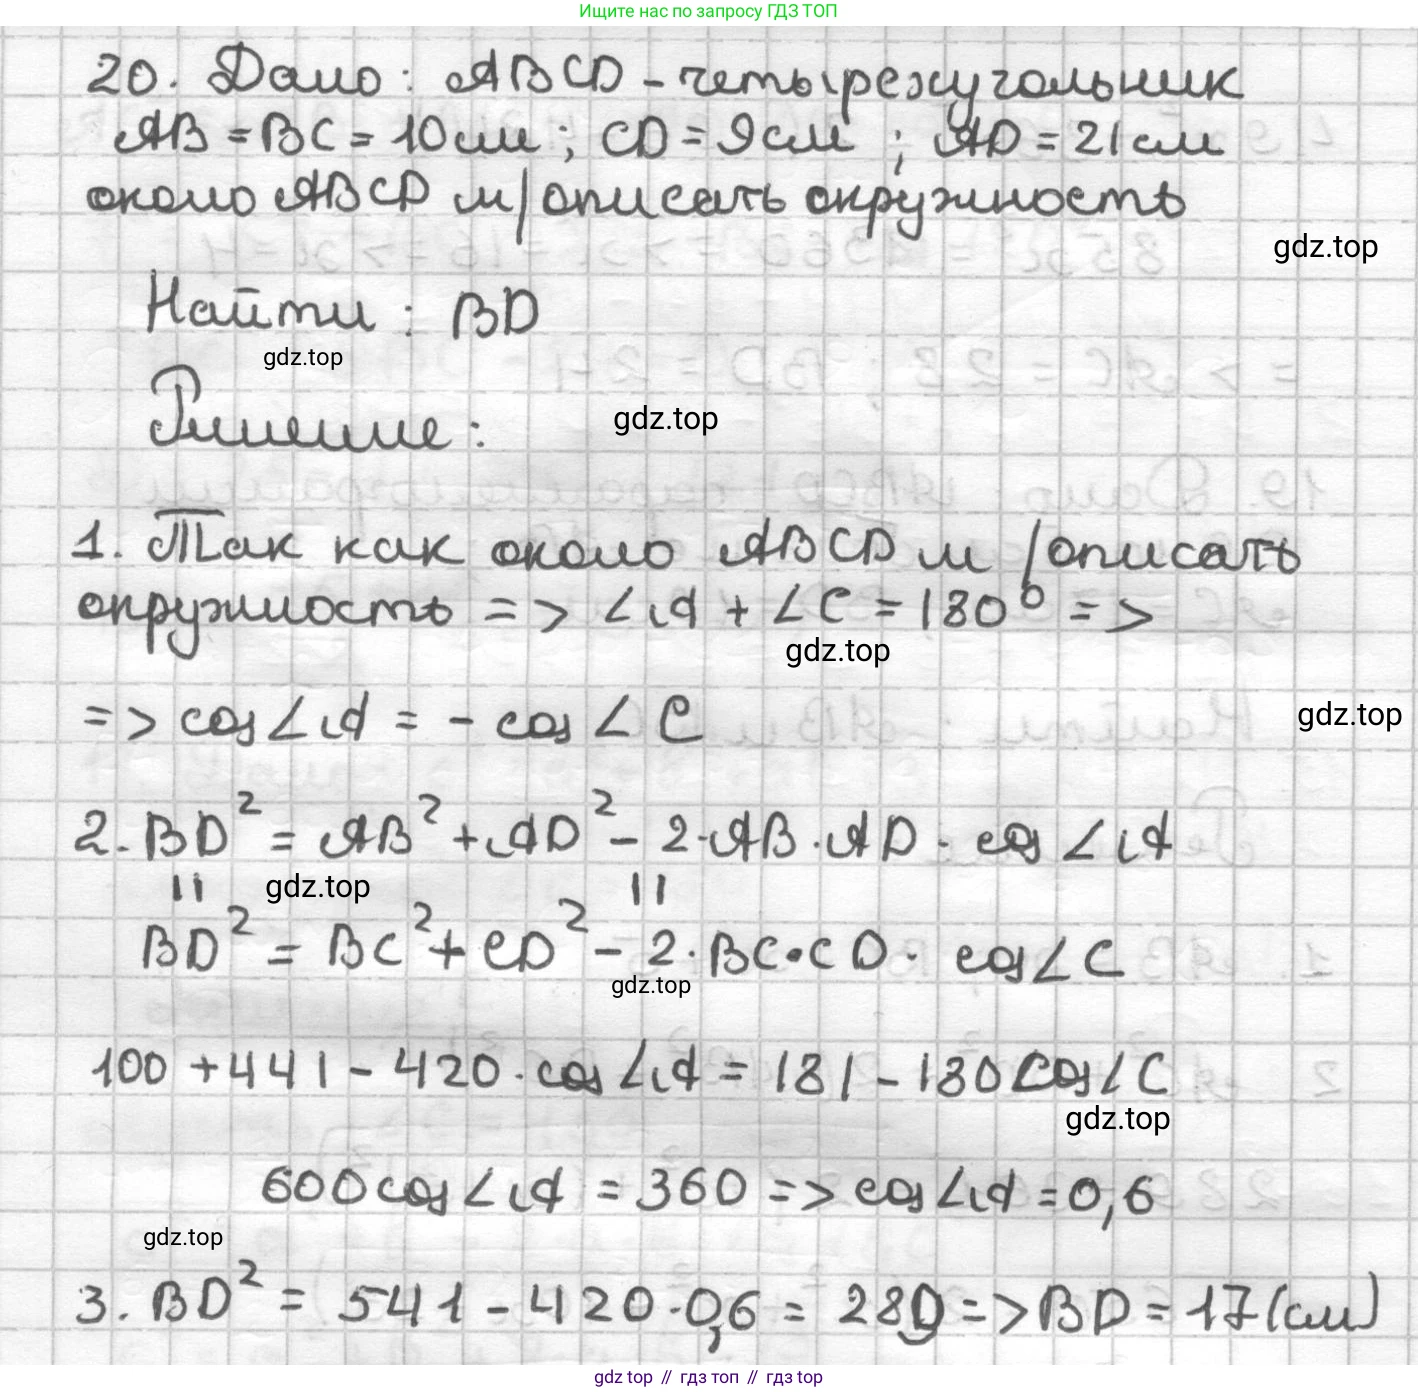 Ищите нас по запросу ГДЗ ТОП
20. Дано: ABCD - четырехугольник
AB = BC = 10 см; CD = 9 см; AD = 21 см
около ABCD м/описать окружность
gdz.top
Найти: BD
gdz.top
Решение:
gdz.top
1. Так как около ABCD м/описать
окружность => ∠A + ∠C = 180° =>
gdz.top
=> cos∠A = - cos∠C
gdz.top
2. BD² = AB² + AD² - 2·AB·AD·cos∠A
|| gdz.top ||
BD² = BC² + CD² - 2·BC·CD·cos∠C
gdz.top
100 + 441 - 420·cos∠A = 181 - 180cos∠C
gdz.top
600cos∠A = 360 => cos∠A = 0,6
gdz.top
3. BD² = 541 - 420·0,6 = 289 => BD = 17 (см)
gdz top // гдз топ // гдз top